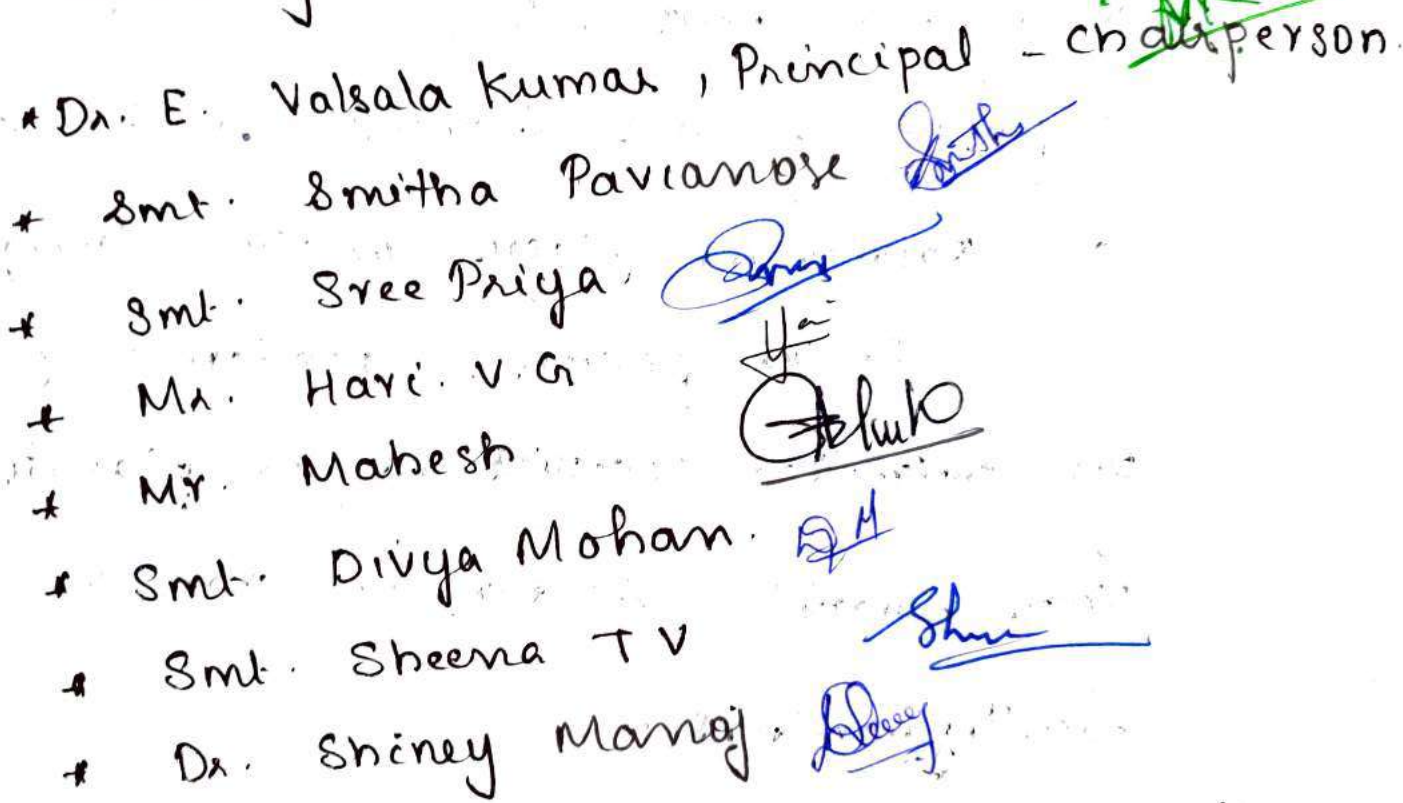 * Dr. E. Valsala Kumar, Principal - Chairperson.
* Smt. Smitha Pavianose
* Smt. Sree Priya
* Mr. Hari. V. G
* Mr. Mahesh
* Smt. Divya Mohan.
* Smt. Sheena T V
* Dr. Shiney Manoj.